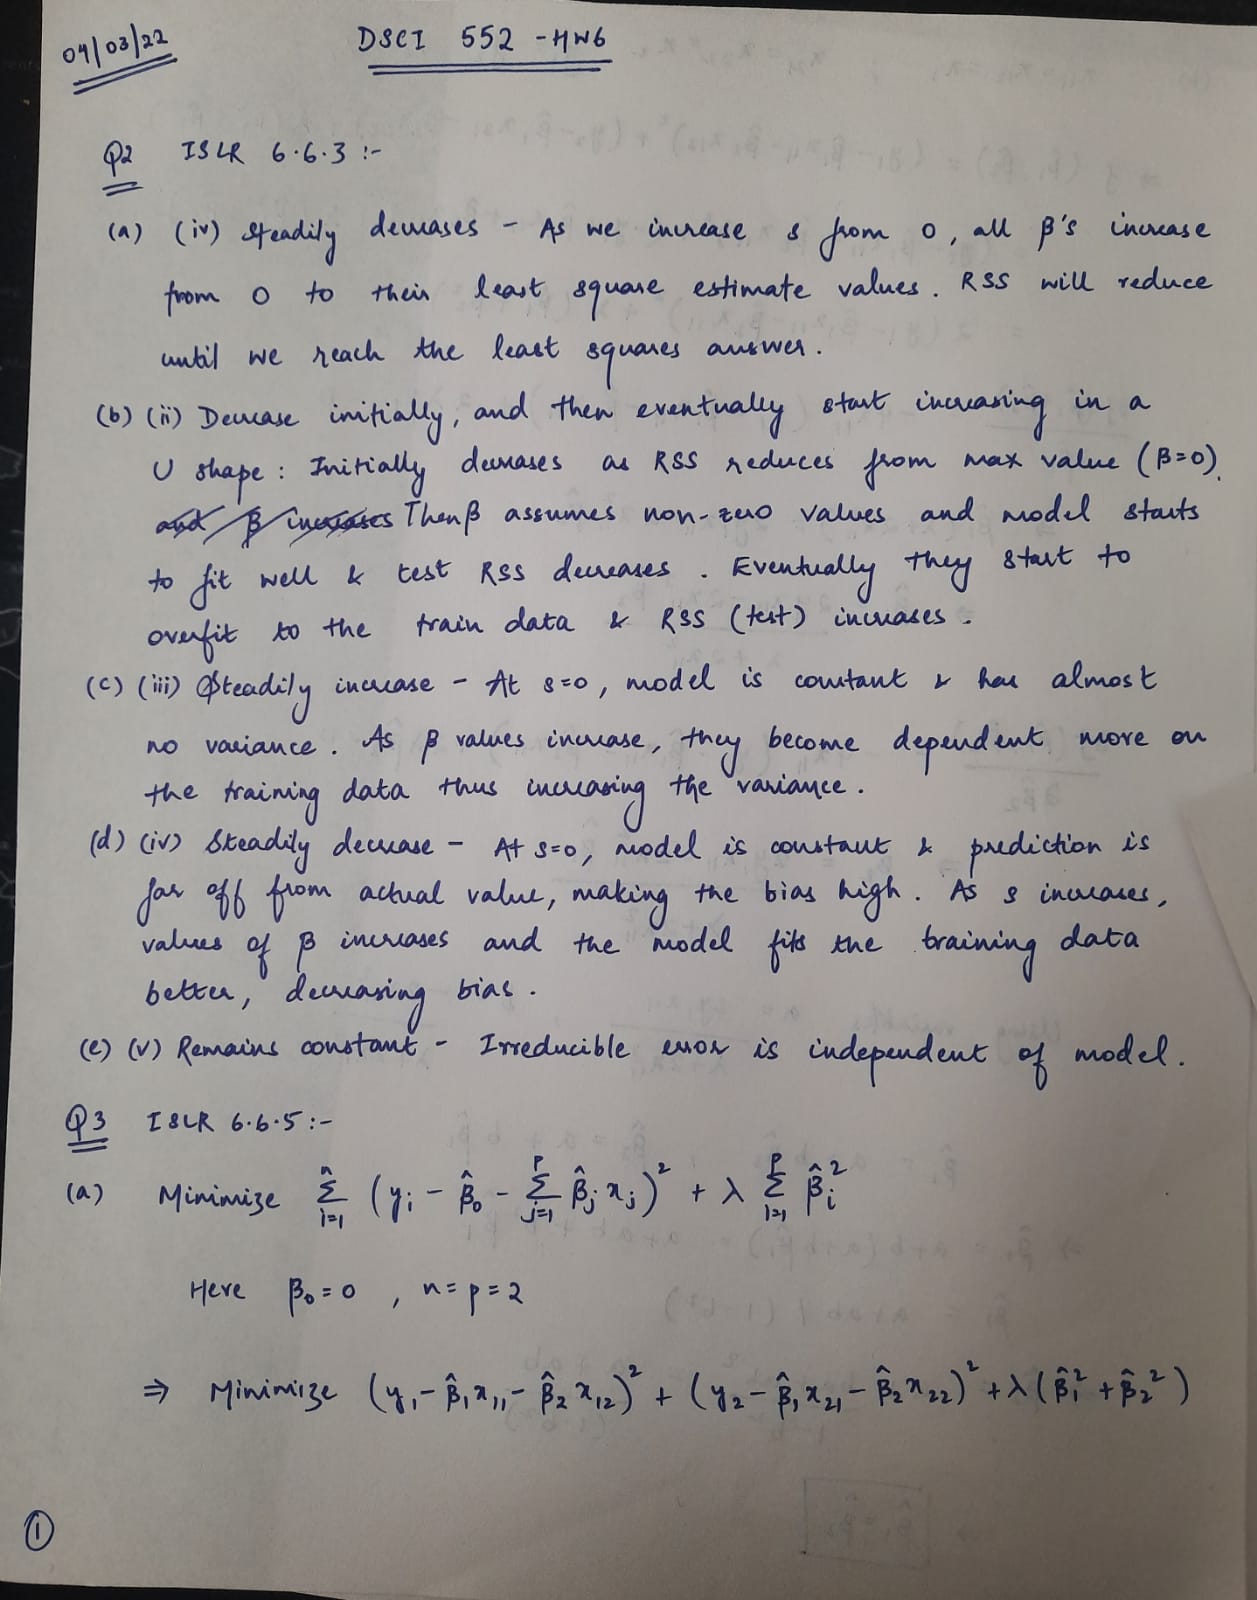 04/03/22
DSCI 552 - HW6
Q2 ISLR 6.6.3 :-
(a) (iv) Steadily decreases - As we increase s from 0, all β's increase
from 0 to their least square estimate values. RSS will reduce
until we reach the least squares answer.
(b) (ii) Decrease initially, and then eventually start increasing in a
U shape : Initially decreases as RSS reduces from max value (β=0).
and β increases Then β assumes non-zero values and model starts
to fit well & test RSS decreases. Eventually they start to
overfit to the train data & RSS (test) increases.
(c) (iii) Steadily increase - At s=0, model is constant & has almost
no variance. As β values increase, they become dependent more on
the training data thus increasing the variance.
(d) (iv) Steadily decrease - At s=0, model is constant & prediction is
far off from actual value, making the bias high. As s increases,
values of β increases and the model fits the training data
better, decreasing bias.
(e) (v) Remains constant - Irreducible error is independent of model.
Q3 ISLR 6.6.5 :-
(a) Minimize Σ_{i=1}^{n} (y_i - β̂_0 - Σ_{j=1}^{p} β̂_j x_j)² + λ Σ_{i=1}^{p} β̂_i²
Here β_0 = 0 , n = p = 2
⇒ Minimize (y_1 - β̂_1 x_11 - β̂_2 x_12)² + (y_2 - β̂_1 x_21 - β̂_2 x_22)² + λ (β̂_1² + β̂_2²)
1